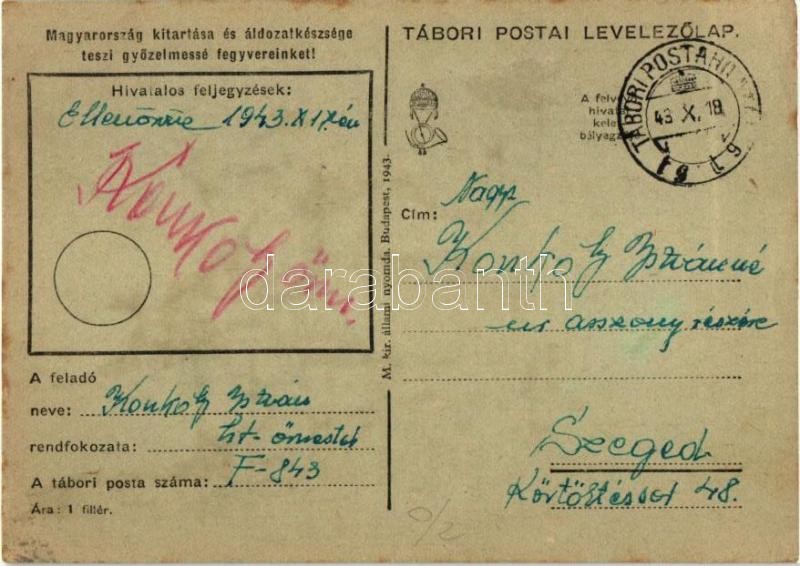 Magyarország kitartása és áldozatkészsége
teszi győzelmessé fegyvereinket!
Hivatalos feljegyzések:
Ellenőrizve 1943. X 17.én
Konkoly őrm.
A feladó
neve: Konkoly István
rendfokozata: őrmester
A tábori posta száma: F-843
Ára: 1 fillér.
M. kir. állami nyomda. Budapest, 1943.
TÁBORI POSTAI LEVELEZŐLAP.
A felv
hivata
kele
bélyegz
TÁBORI POSTAHI
43 X. 18
61
Nagy
Cím: Konkoly Istvánné
úr asszony részére
Szeged
48.
0/2
darabanth